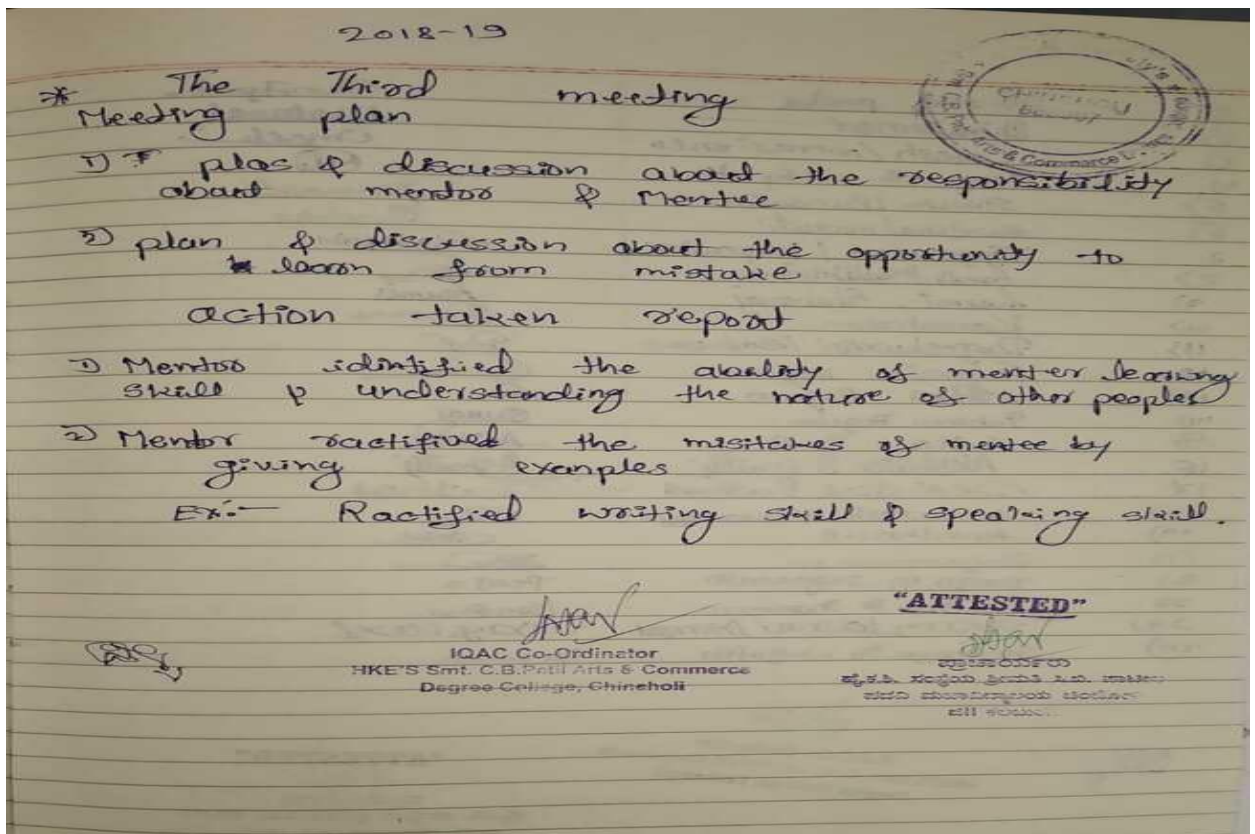 2018-19
* The Third meeting
Meeting plan
1) plas & discussion about the responsibility
about mentor & Mentee
2) plan & discussion about the opportunity to
learn from mistake
action taken report
1) Mentor idintified the abality of menter learning
skill & understanding the nature of other peoples
2) Mentor ractifived the misitakes of mentee by
giving examples
Ex:- Ractified writing skill & speaking skill.
"ATTESTED"
IQAC Co-Ordinator
HKE'S Smt. C.B.Patil Arts & Commerce
Degree College, Chincholi
ಪ್ರಾಚಾರ್ಯರು
Arts & Commerce